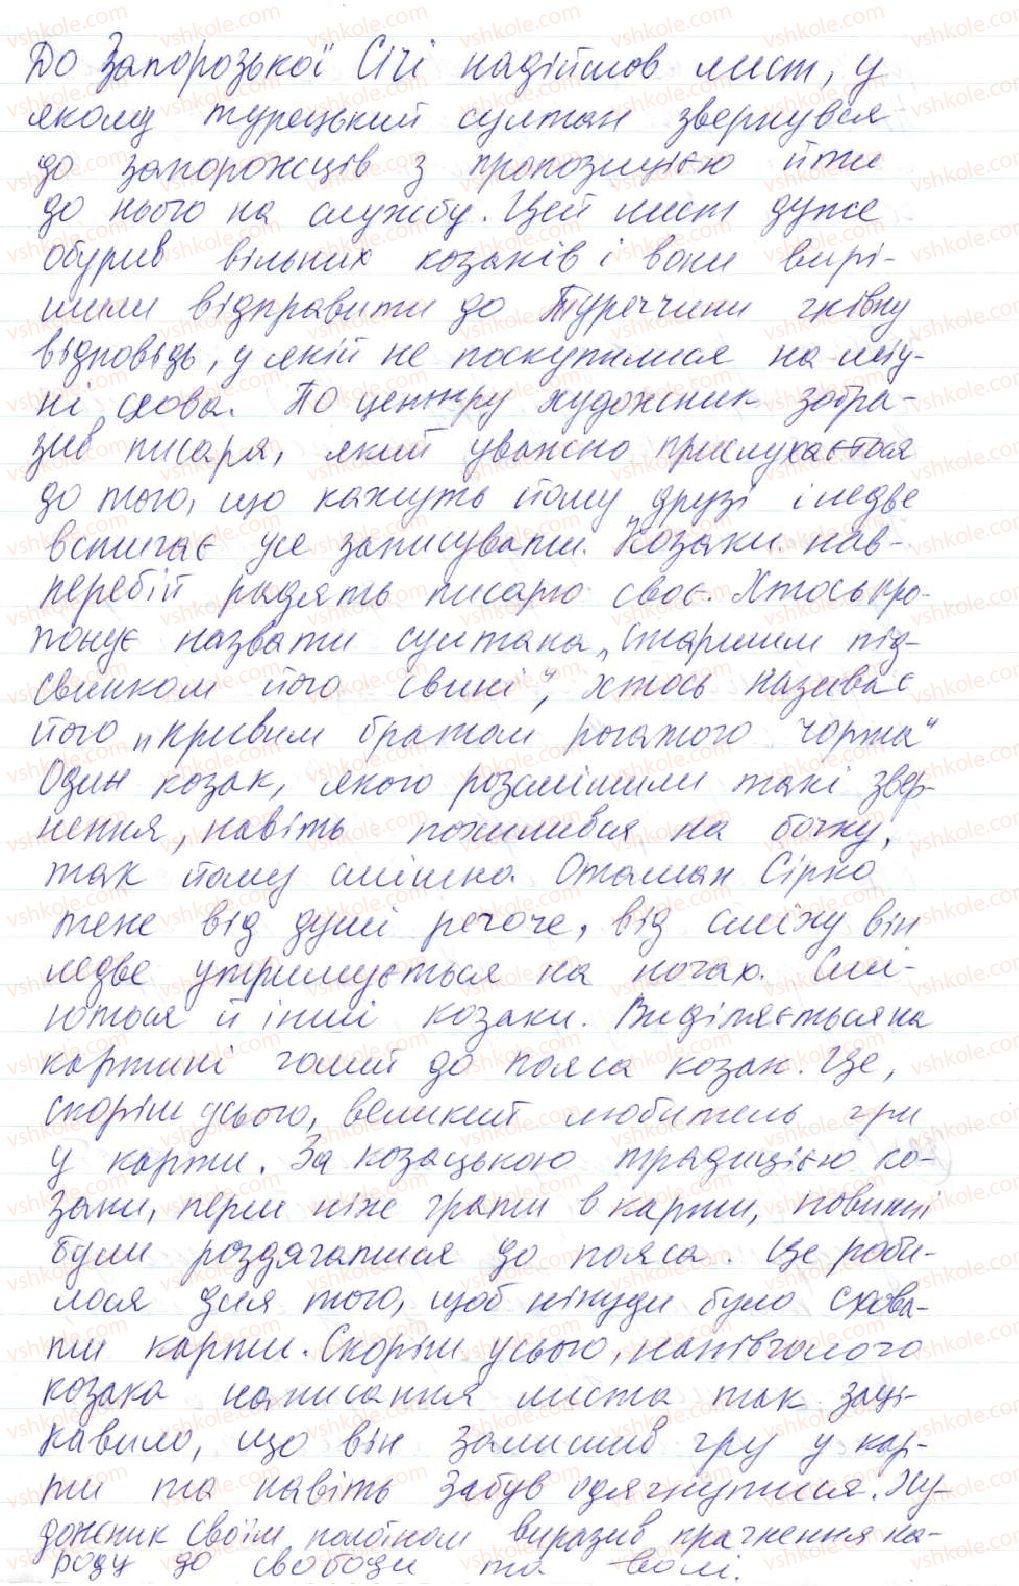 До Запорозької Січі надійшов лист, у
якому турецький султан звернувся
до запорожців з пропозицією йти
до нього на службу. Цей лист дуже
обурив вільних козаків і вони вирі-
шили відправити до Туреччини гнівну
відповідь, у якій не поскупилися на міц-
ні слова. По центру художник зобра-
зив писаря, який уважно прислухається
до того, що кажуть йому друзі і ледве
встигає усе записувати. Козаки нав-
перебій радять писарю своє. Хтось про-
понує назвати султана „Старшим під-
свинком його свині“, хтось називає
його „кривим братом рогатого чорта“
Один козак, якого розсмішили такі звер-
нення, навіть похилився на бочку,
так йому смішно. Отаман Сірко
теж від душі регоче, від сміху він
ледве утримується на ногах. Смі-
ються й інші козаки. Виділяється на
картині голий до пояса козак. Це,
скоріш усього, великий любитель гри
у карти. За козацькою традицією ко-
заки, перш ніж грати в карти, повинні
були роздягатися до пояса. Це роби-
лося для того, щоб нікуди було схова-
ти карти. Скоріш усього, напівголого
козака написання листа так заці-
кавило, що він залишив гру у кар-
ти та навіть забув одягнутися. Ху-
дожник своїм полотном виразив прагнення на-
роду до свободи та волі.